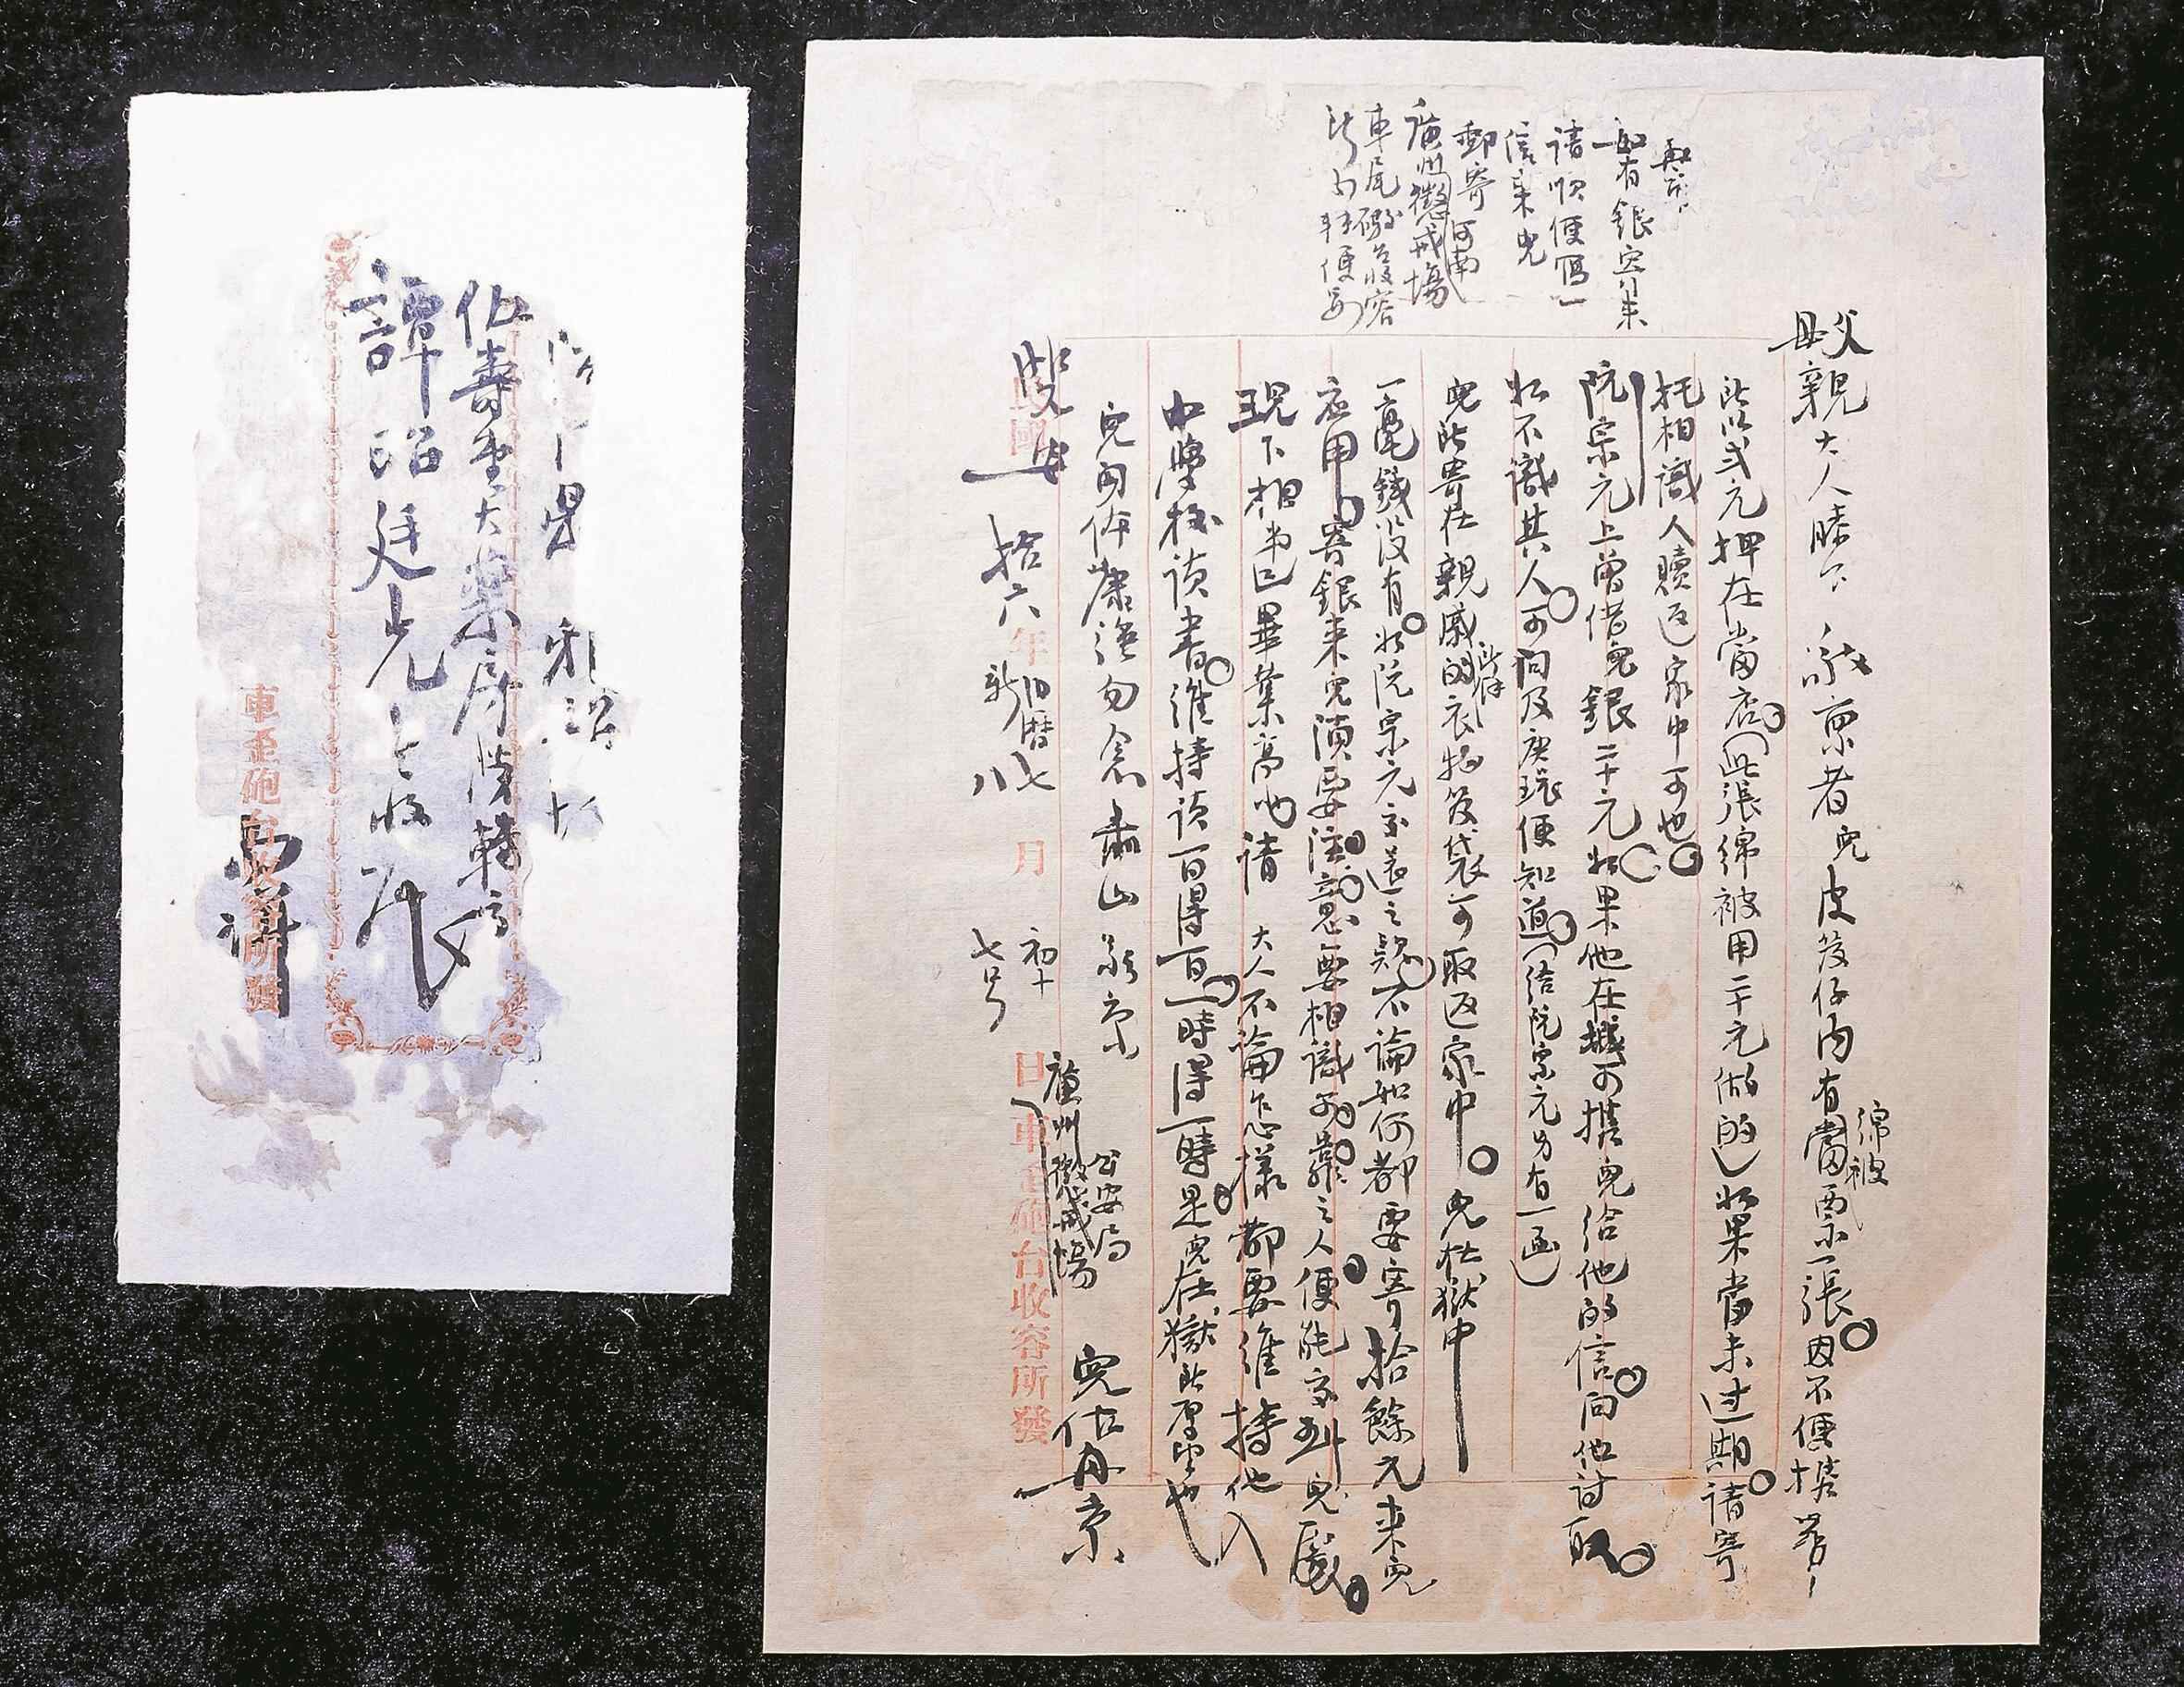 父母親大人膝下 敬稟者兒皮笈仔内有綿被當票一張因不便携帶
以弍元押在當店(此張綿被用二十元做的)如果當未过期請寄
托相識人贖返家中可也
阮宗元上曾借兒銀二十元如果他在城可携兒給他的信问他讨取
如不識其人可问及庚珖便知道(给阮宗元另有一函)
兒所寄在親戚的衣物笈袋可取返家中 兒在獄中
一毫錢没有如阮宗元不还之欵不論如何都要寄拾餘元来兒
應用寄銀来兒須要注意要相識可靠之人便能交到兒處
現下相弟已畢業高小請 大人不論怎樣都要維持他入
中學校读書維持读一日得一日一時得一時是兒在獄所厚望也
兒身体康強勿念肅此敬稟
雙安 兒仕丹禀
民國拾六年旧曆七月初十日
新八 七号
廣州公安局懲戒場
車歪砲台收容所發
再禀
如有銀寄来
請順便寫一
信来兒
郵寄河南
廣州懲戒場
車尾砲台收容
所内轉便妥
仙壽堂大藥房煩轉交
譚滔廷先生收
車歪砲台收容所發